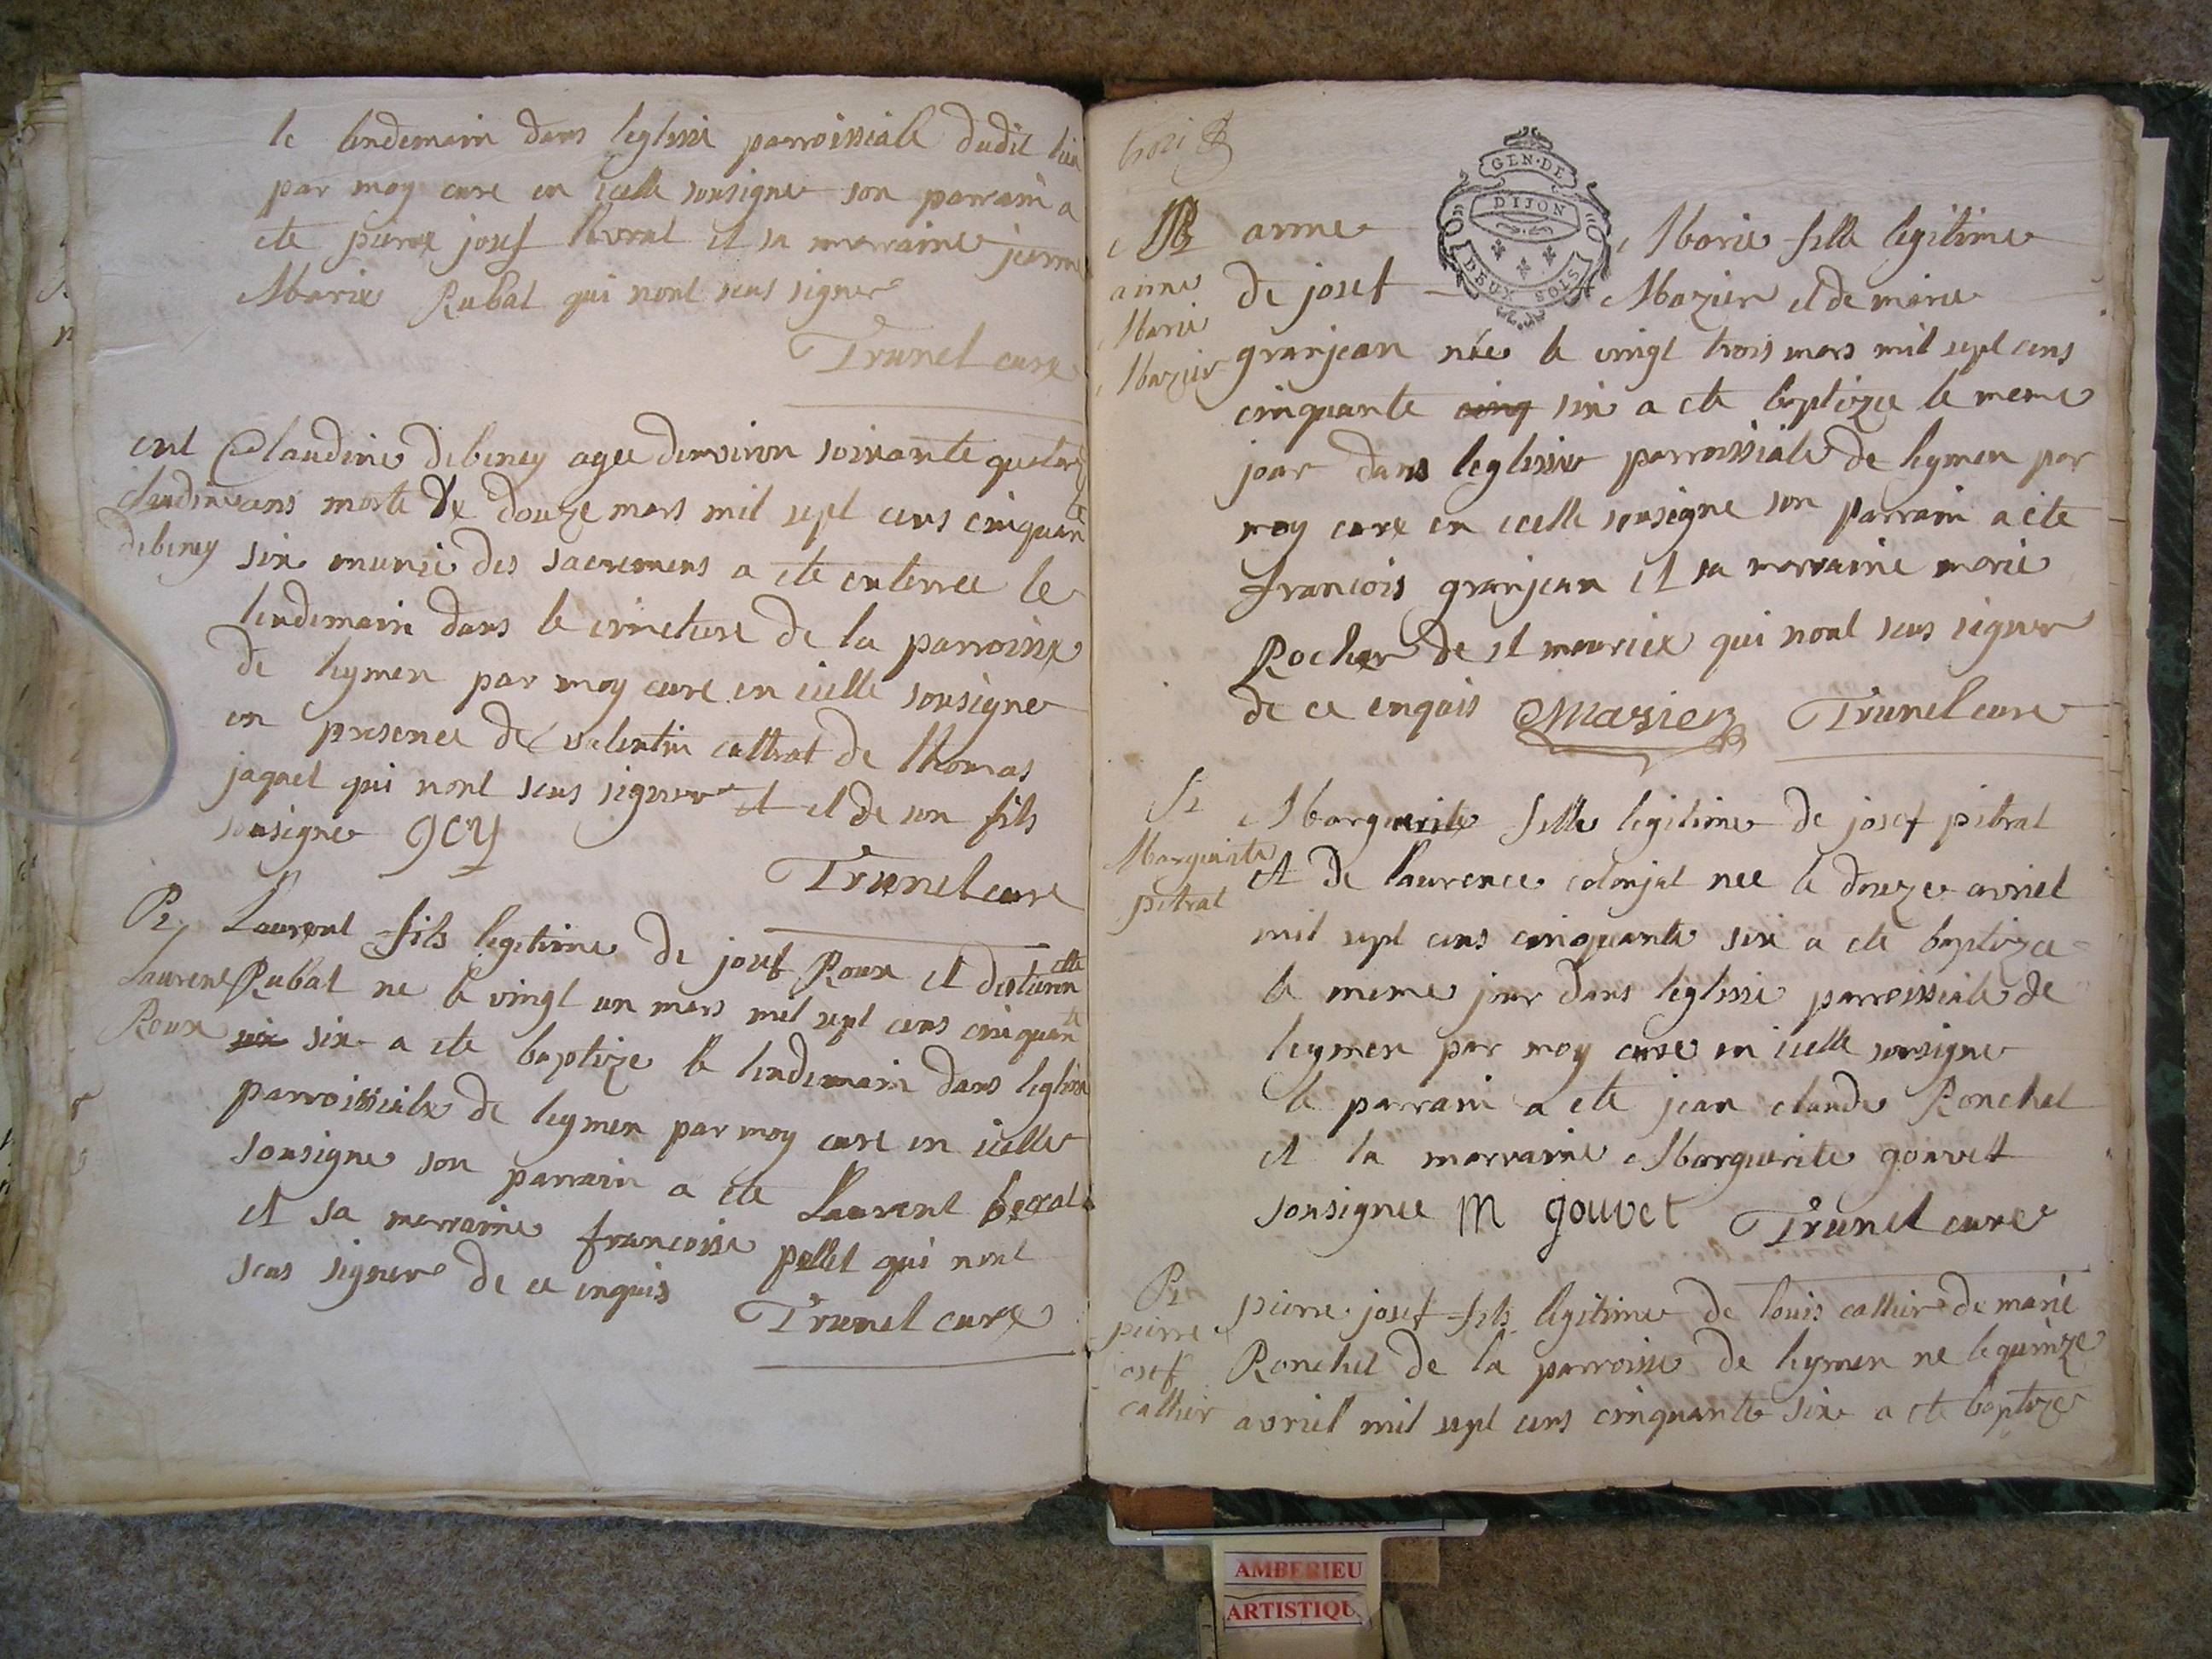 le lendemain dans leglisse parroissiale dudit lieu
par moy cure en icelle sousigne son parrain a
ete pierre josef livrat et sa marraine jeanne
Marie Rubat qui nont seus signer
Trunel cure
ent Claudine debeney agee denviron soixante quatorze
claudine ans morte le douze mars mil sept cens cinquante
debeney six munie des sacremens a ete enterree le
lendemain dans le cimetiere de la parroisse
de leymen par moy cure en icelle sousigne
en presence de valentin cattrat de thomas
jaquet qui nont seus signer et et de son fils
sousigne gcy
Trunel cure
B Laurent fils legitime de josef Roux et distienette
Laurent Rubat ne le vingt un mars mil sept cens cinquante
Roux six six a ete baptize le lendemain dans leglisse
parroissiale de leymen par moy cure en icelle
sousigne son parrain a ete Laurent
et sa marraine francoise pellet qui nont
seus signer de ce enquis
Trunel cure
trois
GEN·DE
DIJON
DEUX SOLS
B anne Marie fille legitime
anne de josef Mazier et de marie
Marie granjean née le vingt trois mars mil sept cens
Mazier cinquante cinq six a ete baptizee le meme
jour dans leglisse parroissiale de leymen par
moy cure en icelle sousigne son parrain a ete
francois granjean et sa marraine marie
Rocher de st mourice qui nont seus signer
de ce enquis Mazier Trunel cure
B Marguerite fille legitime de josef pitrat
Marguerite et de laurence colonjat nee le douze avriel
pitrat mil sept cens cinquante six a ete baptizee
le meme jour dans leglisse parroissiale de
leymen par moy cure en icelle sousigne
le parrain a ete jean claude Ronchet
et la marraine Marguerite gouvet
sousignee M gouvet Trunel cure
B pierre josef fils legitime de louis cathier de marie
pierre Ronchet de la parroisse de leymen ne le quinze
josef avriel mil sept cens cinquante six a ete baptize
cathier
AMBERIEU
ARTISTIQU